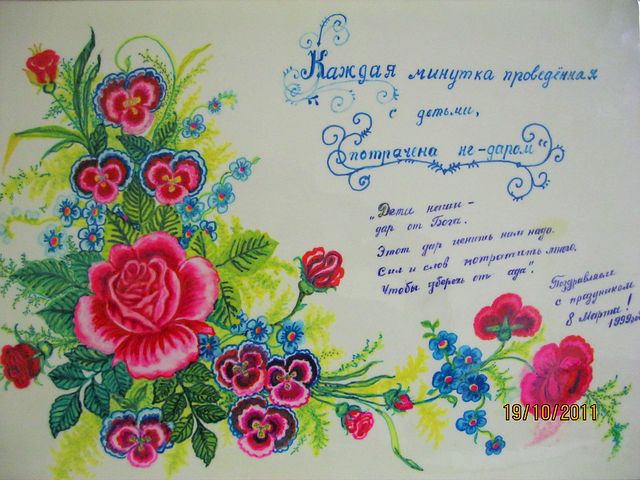 Каждая минутка проведённая
с детьми,
потрачена не-даром"
„Дети наши –
дар от Бога.
Этот дар ценить нам надо.
Сил и слов потратить много,
Чтобы уберечь от ада!
Поздравляем
с праздником
8 Марта!
1999год
19/10/2011